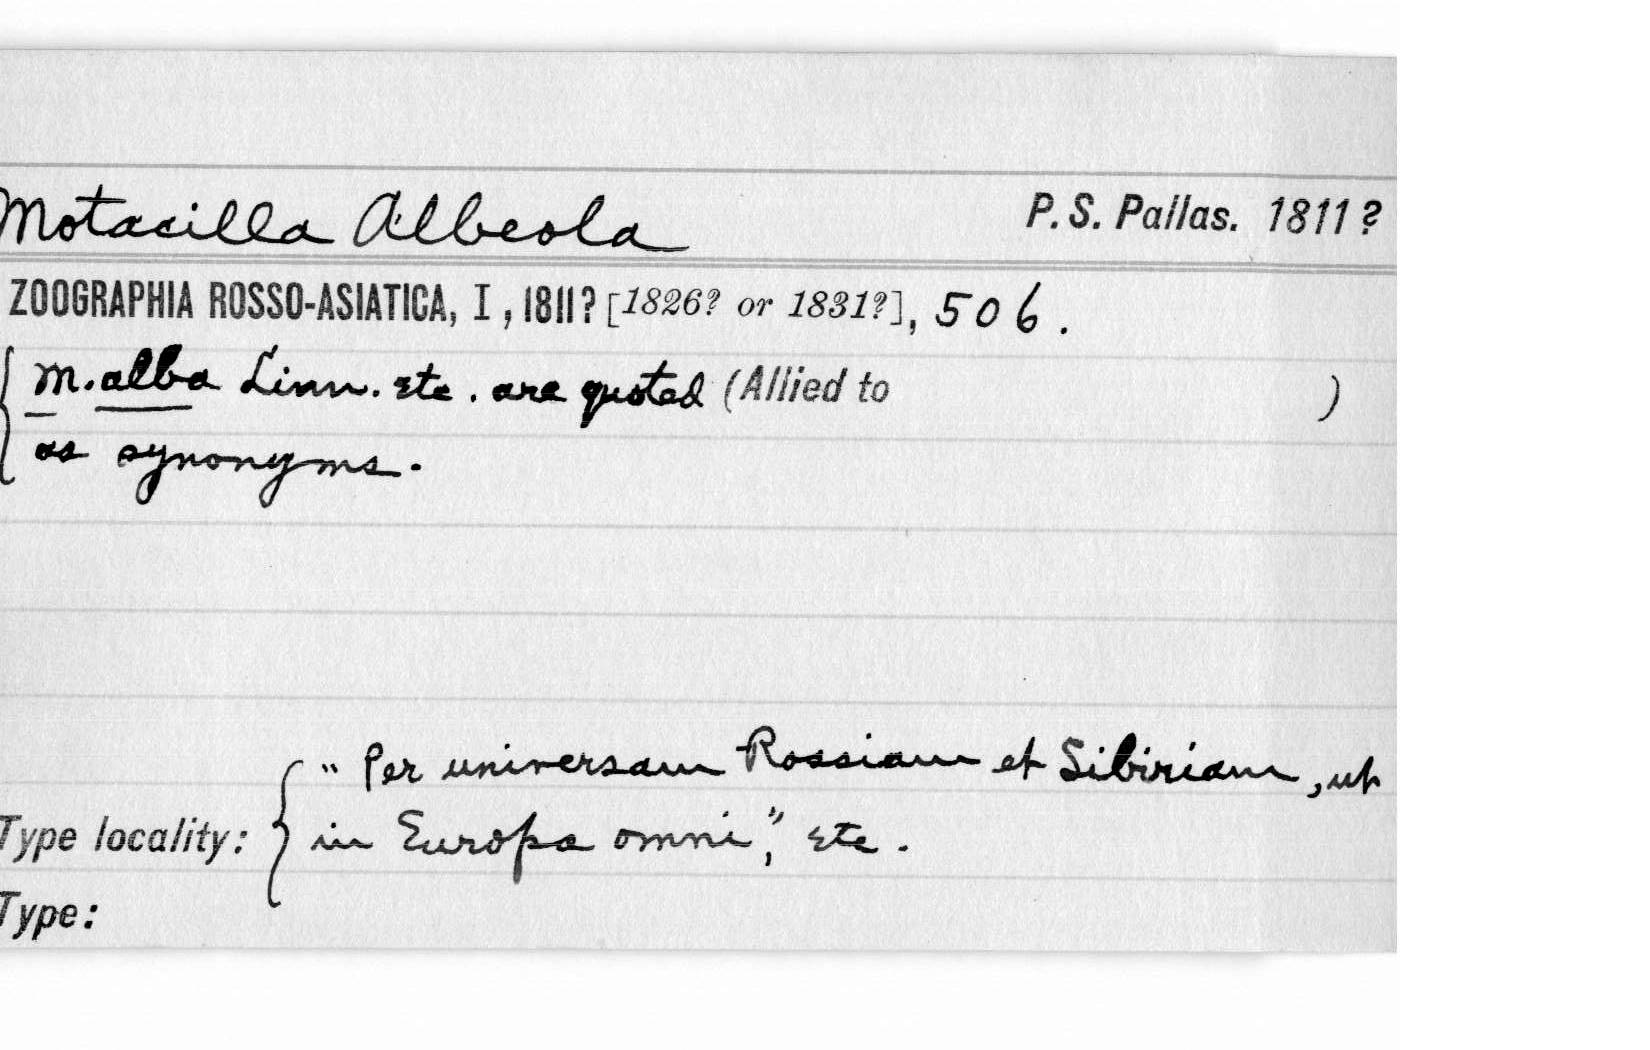 Motacilla Albeola P. S. Pallas. 1811?
ZOOGRAPHIA ROSSO-ASIATICA, I, 1811? [1826? or 1831?], 506.
M. alba Linn. etc. are quoted (Allied to )
as synonyms.
"Per universam Rossiam et Sibiriam, ut
Type locality: in Europa omni", etc.
Type: